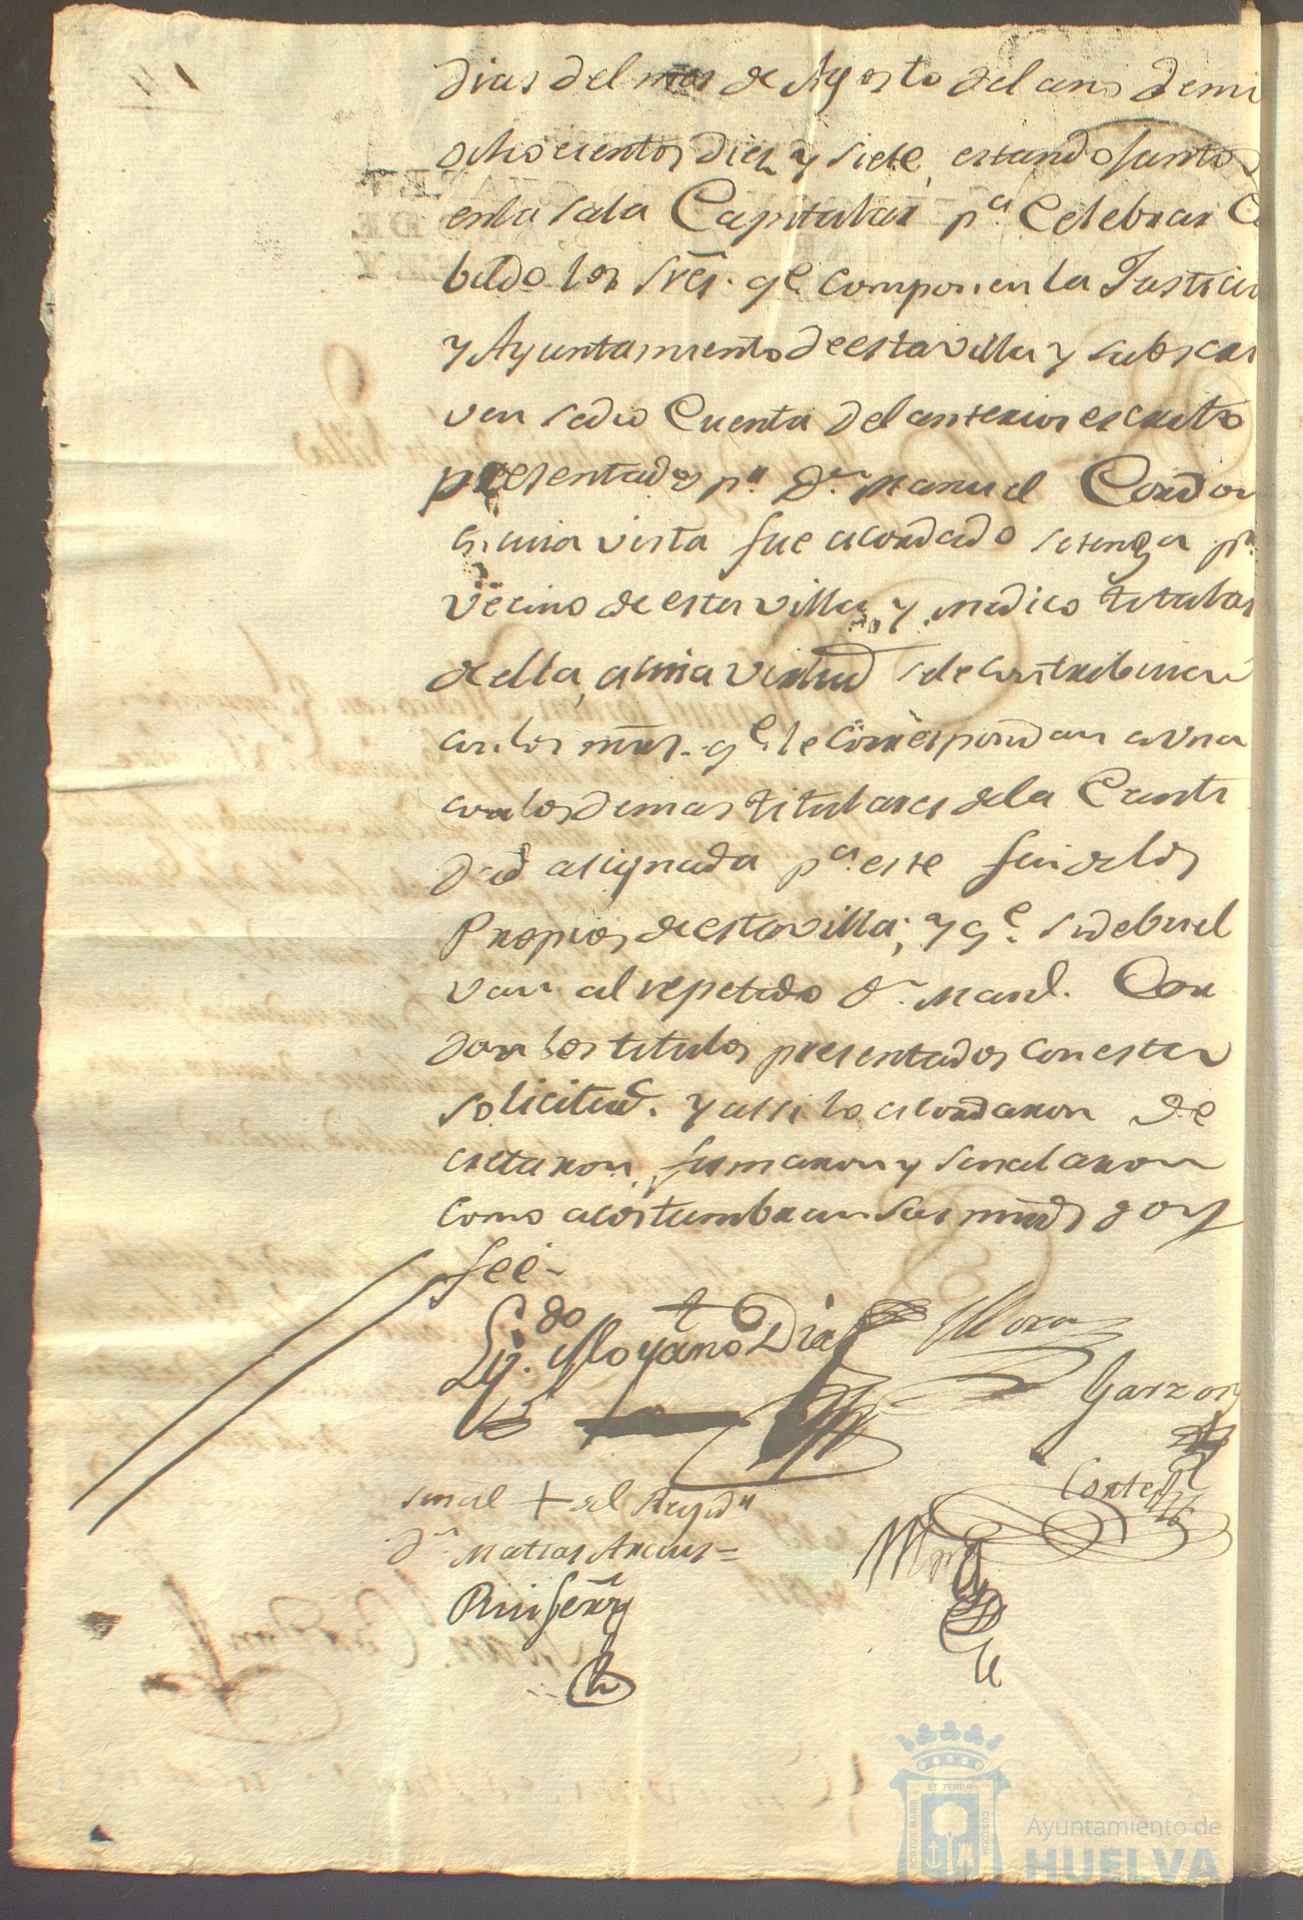 dias del mes de Agosto del ano de mi
ochocientos diez y siete, estando juntos
en la sala Capitular pa. Celebrar Ca
bildo los Sres. qe. componen la Justicia
y Ayuntamiento de esta villa y subscri
ven se dio Cuenta del anterior escrito
presentado pr. Dn. Manuel Cordon
y cuia vista fue acordado se tenga pr.
vecino de esta villa, y medico titular
de ella, a cuia virtud se le contribuira
con los mrs. qe. le correspondan a una
con los demas titulares de la Canti
dad asignada pa. este fin de los
Propios de esta villa; y qe. se debuel
van al repetido Dn. Manl. Cor
don los titulos presentados con esta
solicitud. y assi lo acordaron de
cretaron, firmaron y senalaron
como acostumbran sus mrds doy
fee-
Lizdo. Moyano Diaz
Mora
Garzon
Cortes
señal + del Regidr
Dn. Matias Arcus=
Ruifernz
AYUNTAMIENTO DE HUELVA
PORTUS MARIS ET TERRAE CUSTODIA
Ayuntamiento de
HUELVA